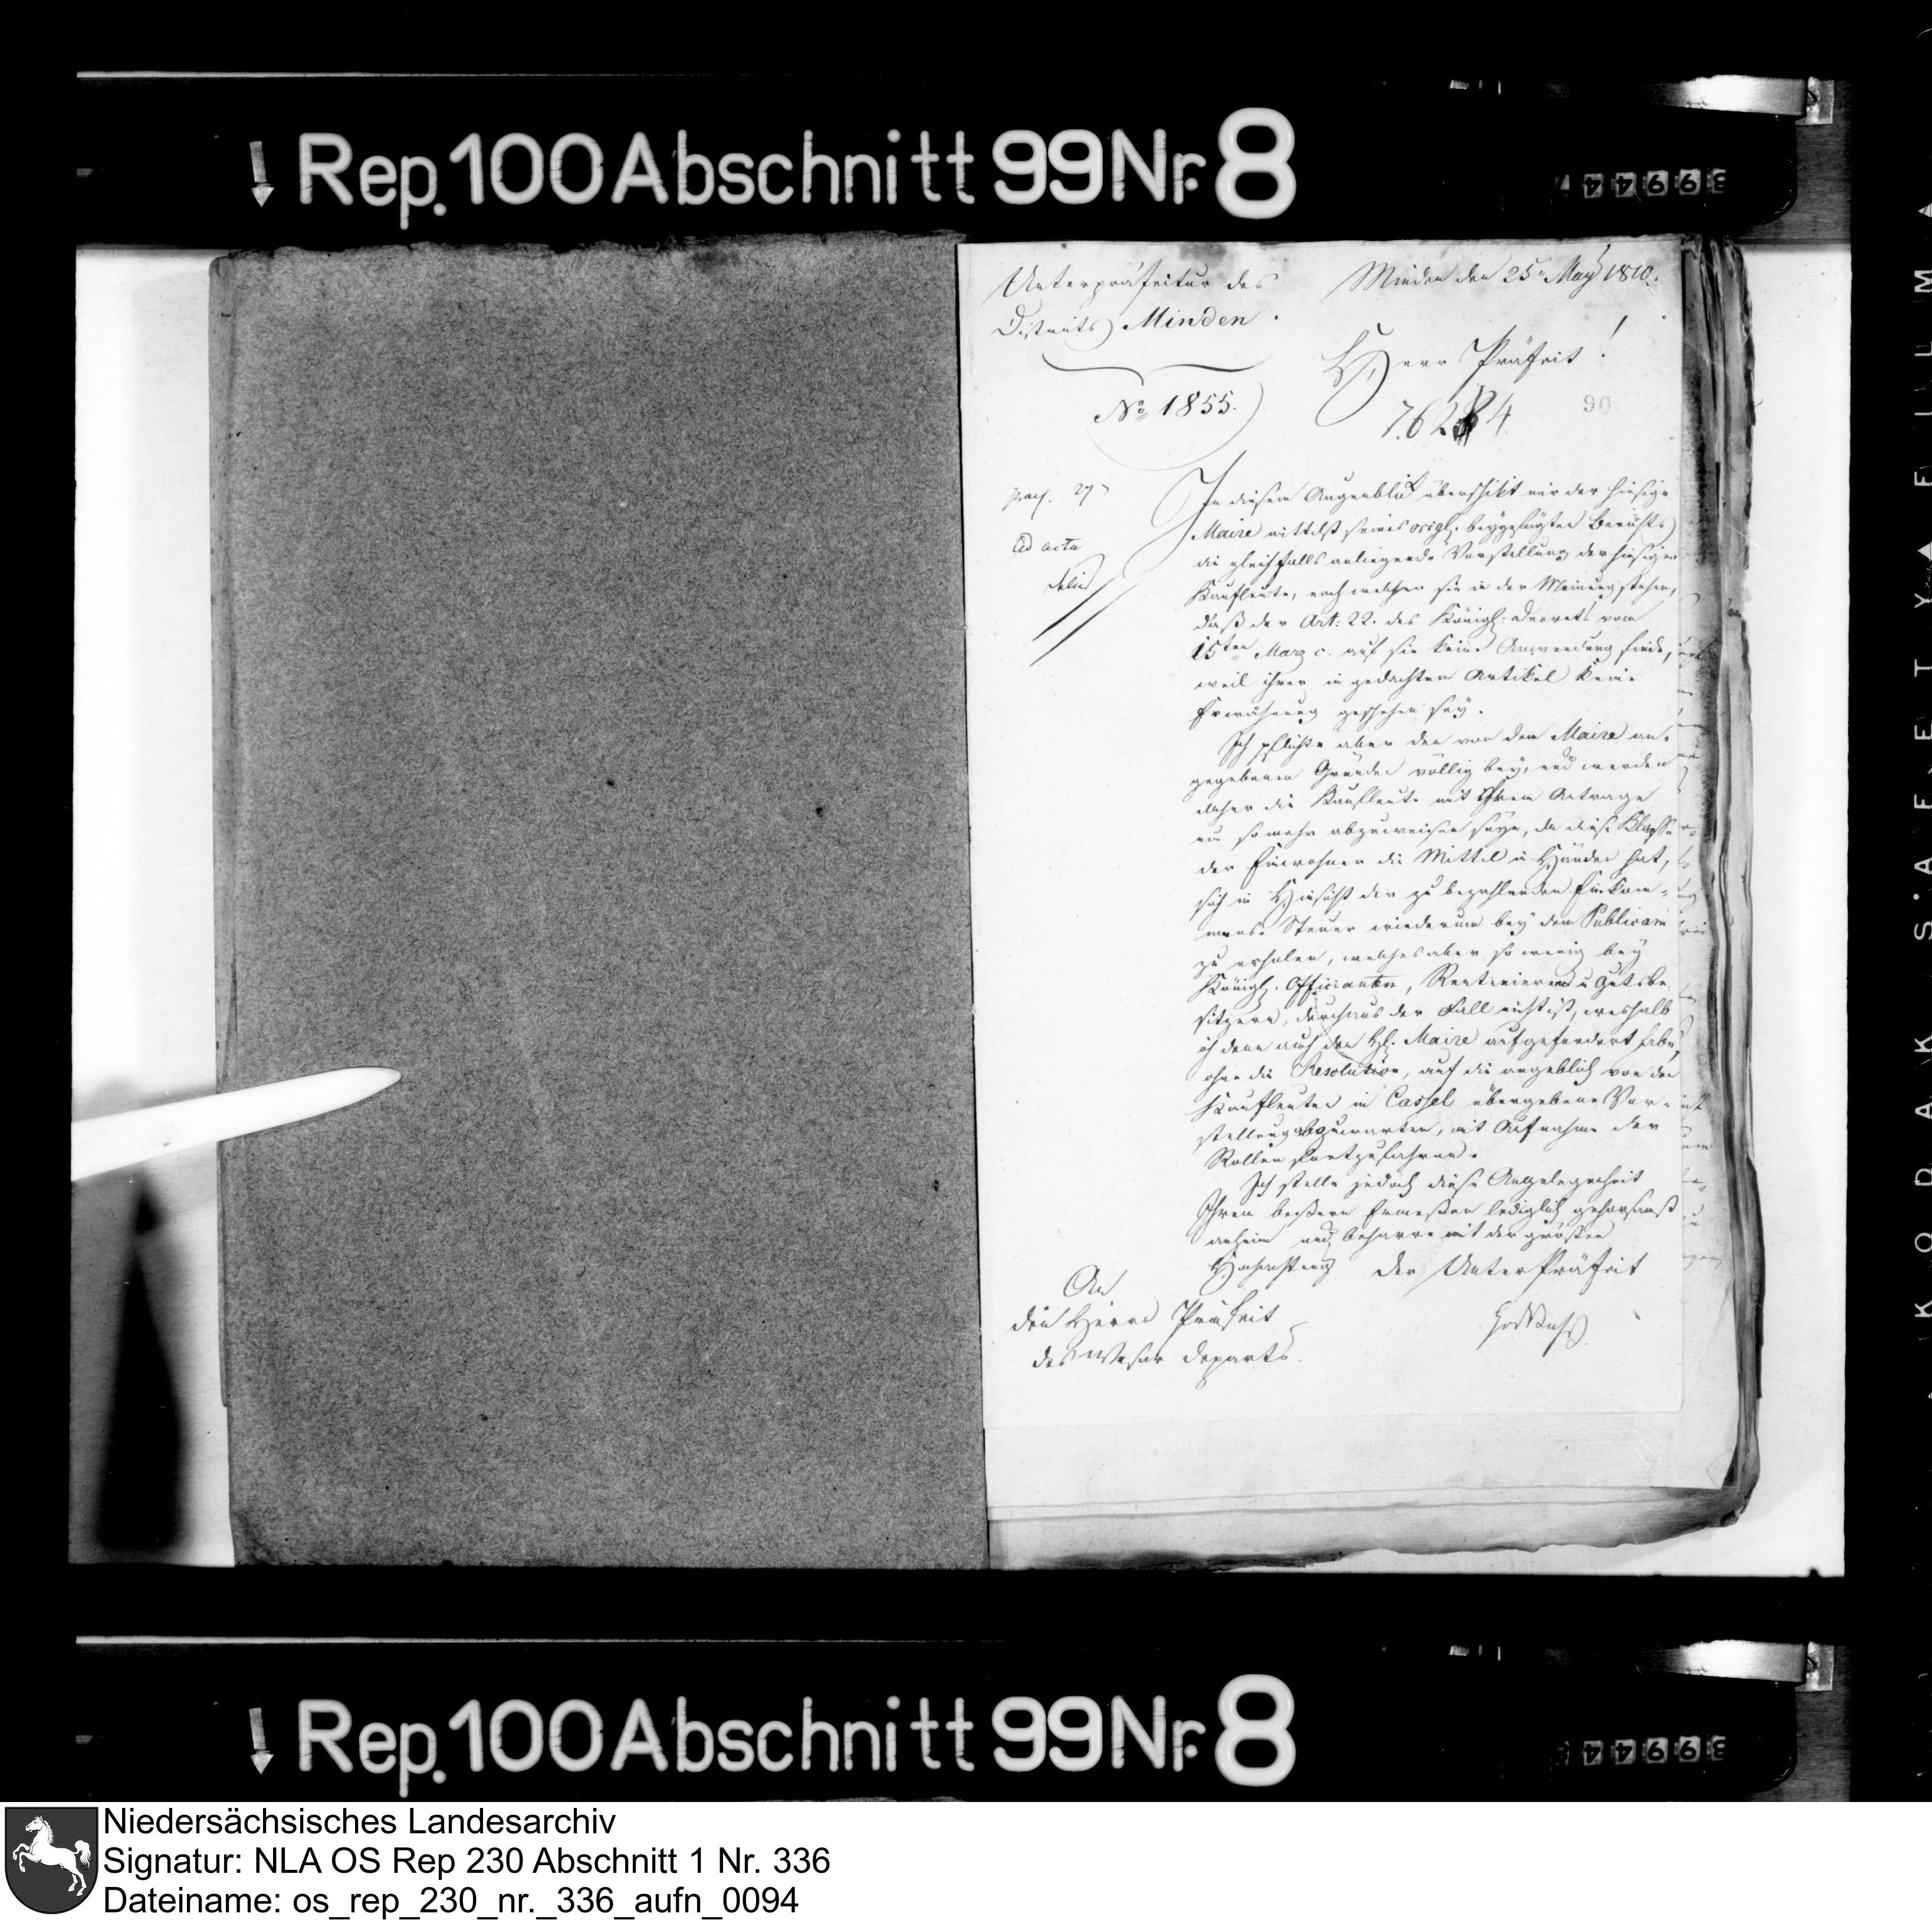 Rep. 100 Abschnitt 99 Nr. 8
Unterpräfectur des
Districts Minden.
Minden den 25ⁿ May 1810.
Herr Präfect!
No 1855.
7.62 4.
90
27
ad acta
In diesem Augenblick überschickt mir der hiesige
Maire mittelst seines origl. beygefügten Berichts
die gleichfalls anliegende Vorstellung der hiesigen
Kaufleute, nach welcher sie in der Meinung stehen,
daß der Art: 22. des Königl: Decrets vom
15ten Marz c. auf sie keine Anwendung finde,
weil ihrer in gedachten Artikel keine
Erwähnung geschehen sey.
Ich pflichte aber den von dem Maire an-
gegebenen Gründen völlig bey, und werden
daher die Kaufleute mit ihrem Antrage
um somehr abzuweisen seyn, da diese Klasse
der Einwohner die Mittel in Händen hat,
sich in Hinsicht der zu bezahlenden Einkom-
mens-Steuer wiederum bey dem Publicum
zu erholen, welches aber so wenig bey
Königl. Officianten, Rentenierern u Gutsbe-
sitzern, durchaus der Fall nicht ist, weshalb
ich denn auch den H. Maire aufgefordert habe,
ohne die Resolution, auf die angeblich von den
Kaufleuten in Cassel übergebene Vor-
stellung abzuwarten, mit Aufnahme der
Rollen fortzufahren.
Ich stelle jedoch diese Angelegenheit
Ihren bessern Ermessen lediglich gehorsamst
anheim und beharre mit der größten
Hochachtung der UnterPräfect
An
den Herrn Präfect
des Weser Departs.
KODAK SAFETY FILM
Rep. 100 Abschnitt 99 Nr. 8
Niedersächsisches Landesarchiv
Signatur: NLA OS Rep 230 Abschnitt 1 Nr. 336
Dateiname: os_rep_230_nr._336_aufn_0094